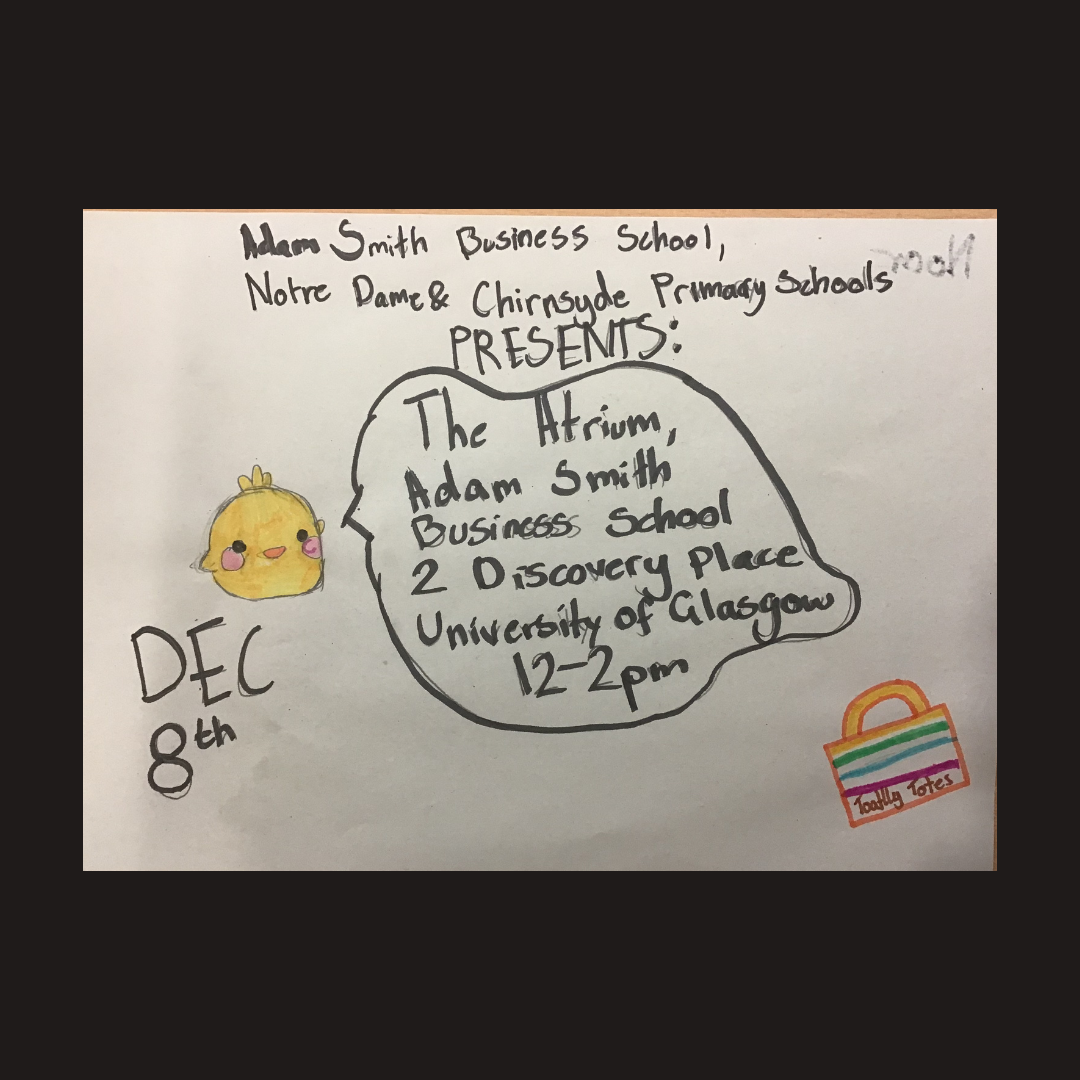 Adam Smith Business School,
Notre Dame & Chirnsyde Primary Schools
PRESENTS:
The Atrium,
Adam Smith
Businesss School
2 Discovery Place
University of Glasgow
12-2pm
DEC
8th
Toatlly Totes